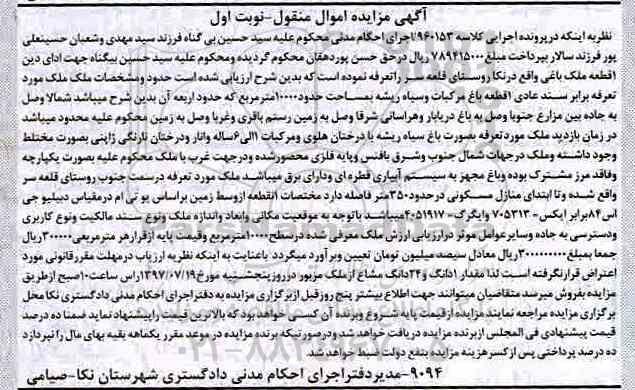 آگهی مزایده اموال منقول-نوبت اول
نظر به اینکه در پرونده اجرایی کلاسه ۹۶۰۱۵۳ اجرای احکام مدنی محکوم علیه سید حسین بی گناه فرزند سید مهدی وشعبان حسینعلی
پور فرزند سالار بپرداخت مبلغ ۷۸۹۴۱۵۰۰۰ ریال در حق حسن پوردهقان محکوم گردیده ومحکوم علیه سید حسین بیگناه جهت ادای دین
۱قطعه ملک باغی واقع درنکا روستای قلعه سر راتعرفه نموده است که بدین شرح ارزیابی شده است حدود ومشخصات ملک ملک مورد
تعرفه برابر سند عادی ۱قطعه باغ مرکبات وسیاه ریشه بمساحت حدود۱۰۰۰۰مترمربع که حدود اربعه آن بدین شرح میباشد شمالا وصل
به جاده بین مزارعی جنوبا وصل به باغ دریابار وهراسانی شرقا وصل به زمین رستم باقری وغربا وصل به زمین محکوم علیه محدود میباشد
در زمان بازدید ملک موردتعرفه بصورت باغ سیاه ریشه با درختان هلوی ومرکبات ۱الی۶ساله وانار ودرختان نارنگی ژاپنی بصورت مختلط
وجود داشته وملک درجهات شمال جنوب وشرق بافنس وپایه فلزی محصورشده ودرجهت غرب با ملک محکوم علیه بصورت یکپارچه
وفاقد مرز مشترک بوده وباغ مجهز به سیستم آبیاری قطره ای ودارای برق میباشد ملک مورد تعرفه درسمت جنوب روستای قلعه سر
واقع شده وتا ابتدای منازل مسکونی درحدود۳۵۰متر فاصله دارد مختصات ۱نقطه ازوسط زمین براساس یو تی ام درمقیاس دبیلیو جی
اس۸۴برابر ایکس- ۷۰۵۳۱۳ وایگرگ- ۴۰۵۱۹۱۷میباشد باتوجه به موقعیت مکانی وابعاد واندازه ملک ونوع سند مالکیت ونوع کاربری
ودسترسی به جاده وسایرعوامل موثر درارزیابی ارزش ملک معرفی شده درسطح۱۰۰۰۰مترمربع وقیمت پایه ازقرارهر مترمربعی۳۰۰۰۰۰ریال
جمعا بمبلغ۳۰۰۰۰۰۰۰۰۰ریال معادل سیصد میلیون تومان تعیین وبرآورد میگردد باعنایت به اینکه نظریه ارزیاب درمهلت مقررقانونی مورد
اعتراض قرارنگرفته است لذا مقدار ۱دانگ و۲۴دانگ مشاع ازملک مزبور درروزپنجشنبه مورخ۱۳۹۷/۰۷/۱۹راس ساعت۱۰صبح ازطریق
مزایده بفروش میرسد متقاضیان میتوانند جهت اطلاع بیشتر پنج روزقبل ازبرگزاری مزایده به دفتراجرای احکام مدنی دادگستری نکا محل
برگزاری مزایده مراجعه نمایند مزایده ازقیمت پایه شروع وبرنده آن کسی خواهد بود که بالاترین قیمت راپیشنهاد نماید ضمنا ده درصد
قیمت پیشنهادی فی المجلس ازبرنده مزایده دریافت خواهد شد ودرصورتیکه برنده مزایده در موعد مقرر یکماهه بقیه بهای مال را نپردازد
ده درصد پرداختی پس از کسر هزینه مزایده بنفع دولت ضبط خواهد شد.
۹۰۹۴-مدیردفتراجرای احکام مدنی دادگستری شهرستان نکا-صیامی